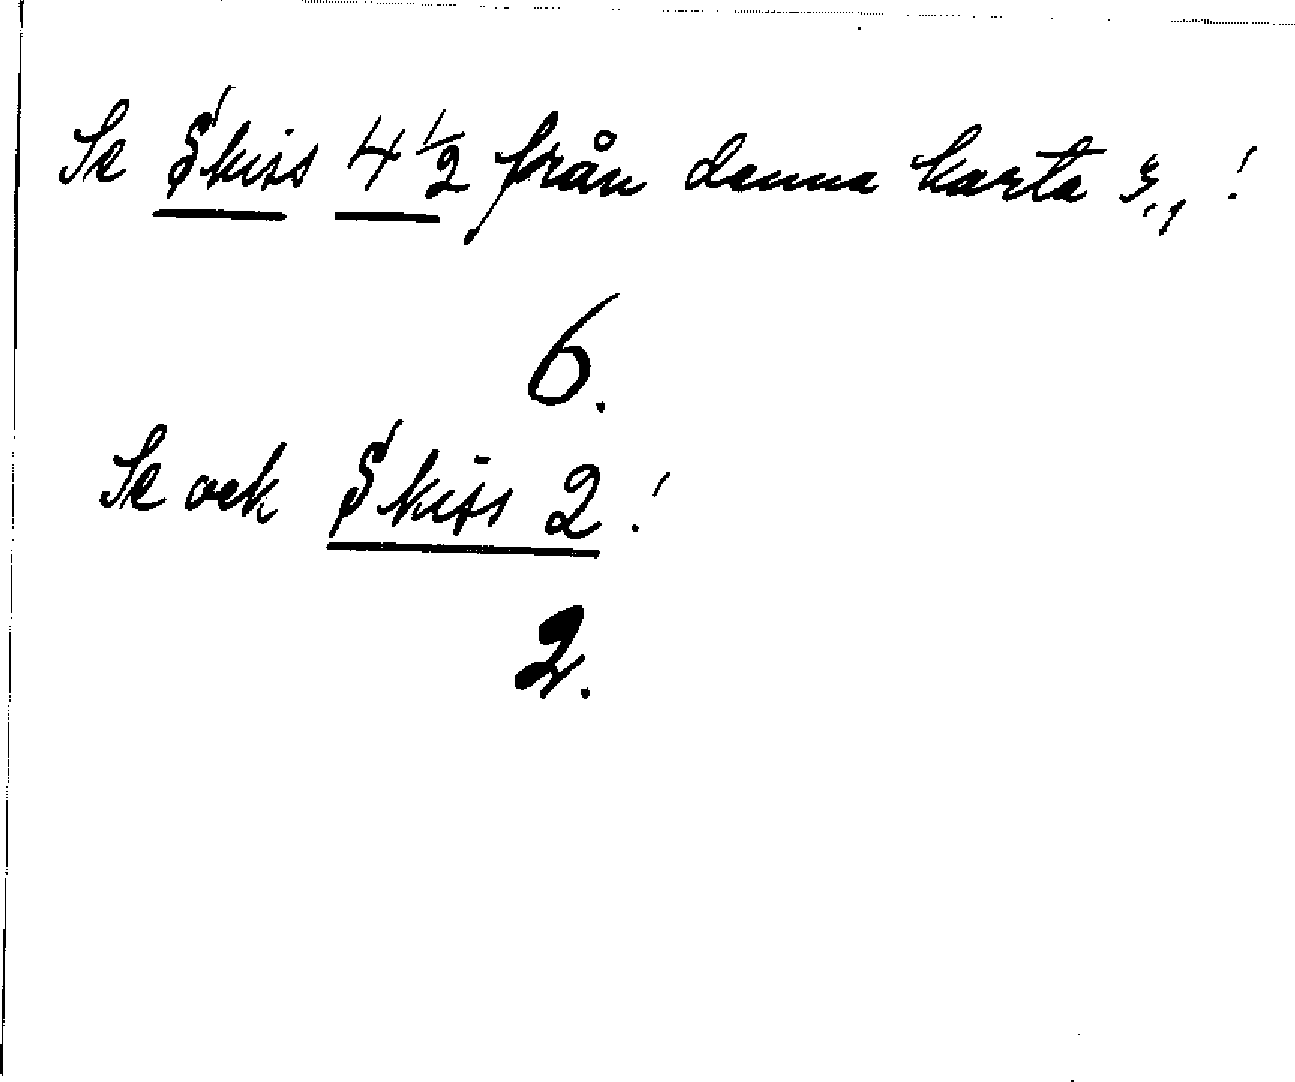 Se Skiss 4½ från denna karta 3,1!
6.
Se ock Skiss 2!
2.